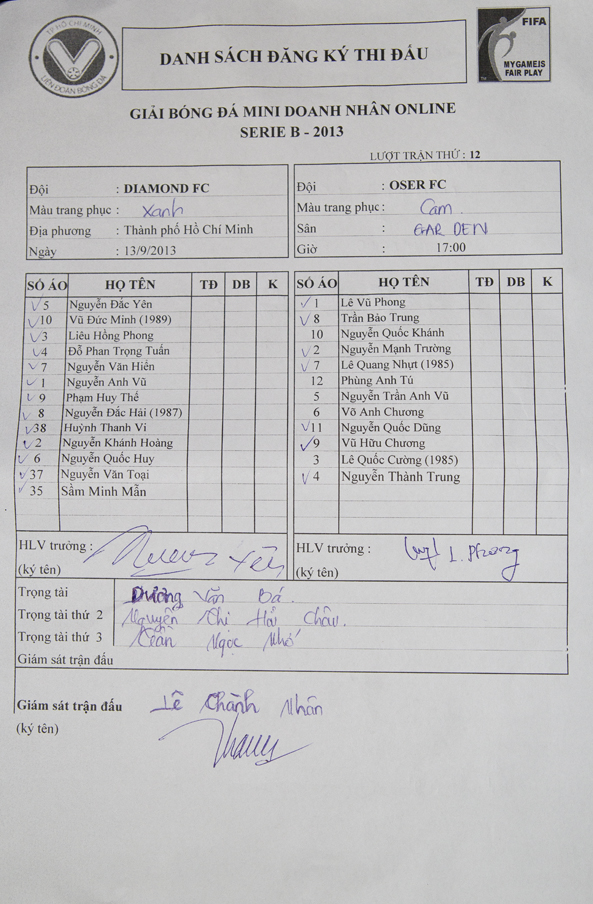 TP HỒ CHÍ MINH
LIÊN ĐOÀN BÓNG ĐÁ
DANH SÁCH ĐĂNG KÝ THI ĐẤU
FIFA
MY GAME IS
FAIR PLAY
GIẢI BÓNG ĐÁ MINI DOANH NHÂN ONLINE
SERIE B - 2013
LƯỢT TRẬN THỨ : 12
Đội : DIAMOND FC
Màu trang phục : Xanh
Địa phương : Thành phố Hồ Chí Minh
Ngày : 13/9/2013
Đội : OSER FC
Màu trang phục : Cam
Sân : GAR DEN
Giờ : 17:00
SỐ ÁO HỌ TÊN TĐ DB K
5 Nguyễn Đắc Yên
10 Vũ Đức Minh (1989)
3 Liêu Hồng Phong
4 Đỗ Phan Trọng Tuấn
7 Nguyễn Văn Hiển
1 Nguyễn Anh Vũ
9 Phạm Huy Thế
8 Nguyễn Đắc Hải (1987)
38 Huỳnh Thanh Vi
2 Nguyễn Khánh Hoàng
6 Nguyễn Quốc Huy
37 Nguyễn Văn Toại
35 Sầm Minh Mẫn
HLV trưởng :
Yên
(ký tên)
SỐ ÁO HỌ TÊN TĐ DB K
1 Lê Vũ Phong
8 Trần Bảo Trung
10 Nguyễn Quốc Khánh
2 Nguyễn Mạnh Trường
7 Lê Quang Nhựt (1985)
12 Phùng Anh Tú
5 Nguyễn Trần Anh Vũ
6 Võ Anh Chương
11 Nguyễn Quốc Dũng
9 Vũ Hữu Chương
3 Lê Quốc Cường (1985)
4 Nguyễn Thành Trung
HLV trưởng : L. Phong
(ký tên)
Trọng tài Dương Văn Bá.
Trọng tài thứ 2 Nguyễn Chi Hải Châu.
Trọng tài thứ 3 Trần Ngọc Nhớ
Giám sát trận đấu
Giám sát trận đấu Lê Chành Nhân
(ký tên)